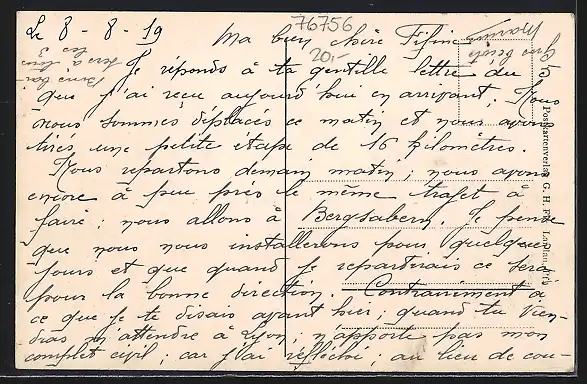 Le 8 - 8 - 19
76756
20.-
Ma bien chère Fifine
Je réponds à ta gentille lettre du 5
que j'ai reçu aujourd'hui en arrivant. Nous
nous sommes déplacés ce matin et nous avons
tirés une petite étape de 16 kilomètres.
Nous repartons demain matin; nous avons
encore à peu près le même trajet à
faire; nous allons à Bergzabern. Je pense
que nous nous installerons pour quelques
jours et que quand je repartirais ce sera
pour la bonne direction. Contrairement à
ce que je te disais avant hier; quand tu vien-
dras m'attendre à Lyon; n'apporte pas mon
complet civil; car j'ai réfléchi; au lieu de cou-
Bons bai-
sers à tous
les 3
Marius
qui
Postkartenverlag G. H. Landau